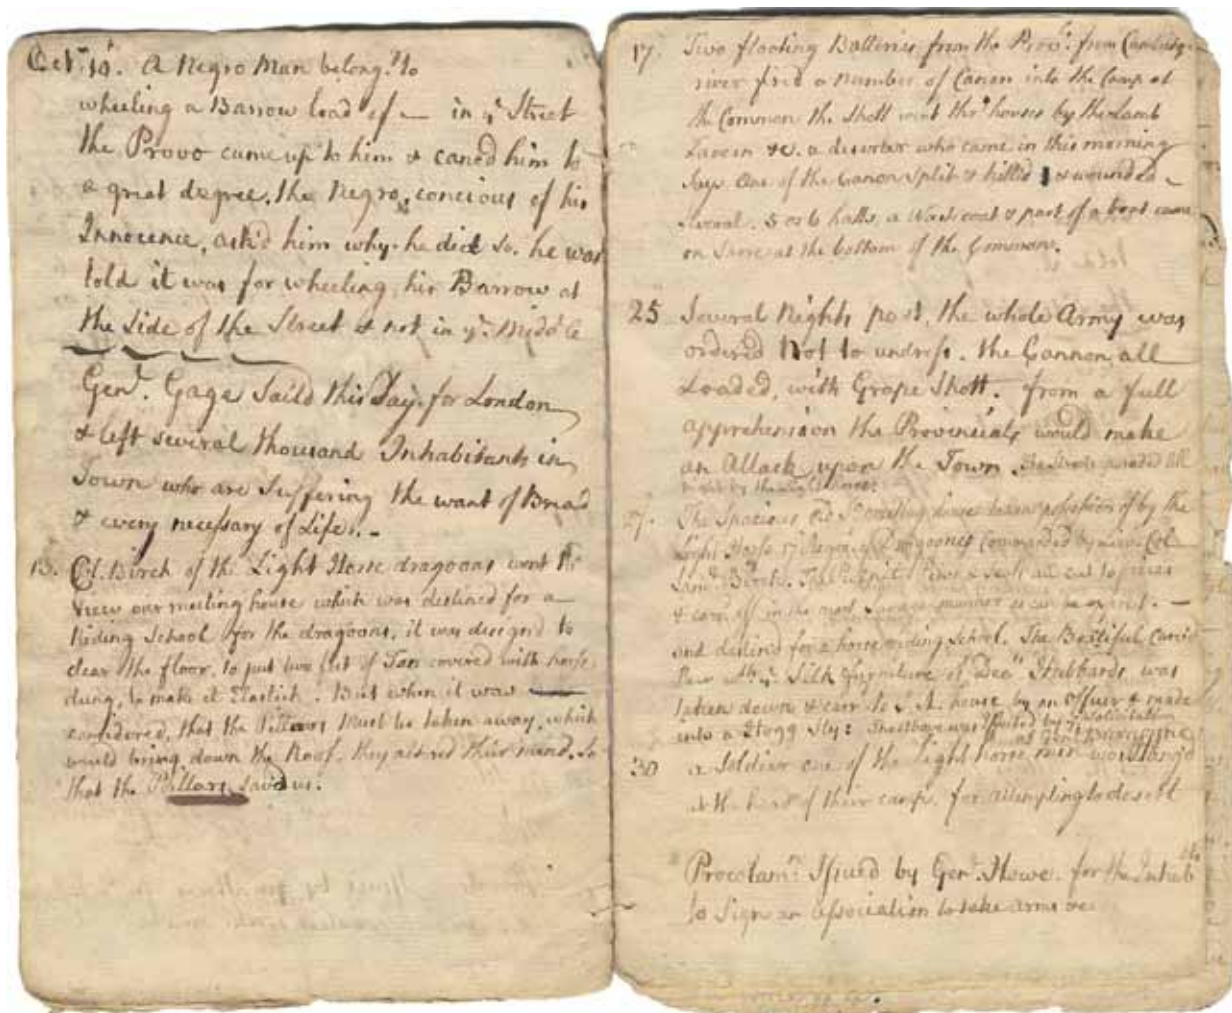 Octr. 10. A Negro Man belongg. to
wheeling a Barrow load of — in ye Street
the Provo came up to him & caned him to
a great degree. the Negro, concious of his
Innocence, ask'd him why he did so. he was
told it was for wheeling his Barrow at
the side of the Street & not in ye. Middle
Genl. Gage Saild this Day for London
& left several thousand Inhabitants in
Town who are Suffering the want of Bread
& every necessary of Life. -
13. Col. Birch of the Light Horse dragoons went to
View our meeting house which was destined for a
Riding School for the dragoons, it was designd to
clear the floor, to put two feet of Tan covered with horse
dung, to make it Elastick. But when it was
considered, that the Pillars must be taken away, which
would bring down the Roof, they altered their mind, So
that the Pillars saved us.
17. Two floating Batteries from the Provl. from Cambridge
river fired a number of Canon into the Camp at
the Common the Shott went thro houses by the Lamb
Tavern &c. a deserter who came in this morning
Says One of the Canon Split & killed 1 & wounded
Several. 5 or 6 hatts, a Waist coat & part of a boat came
on Shore at the bottom of the Common.
25 Several Nights past, the whole Army was
ordered Not to undress. the Cannon all
Loaded, with Grape Shott. from a full
apprehension the Provincials would make
an Attack upon the Town. The Streets paraded all
night by the Light Horse.
27. The Spacious Old So meeting house taken possession of by the
Light Horse 17 Regimt. of Dragoones Commanded by Lieut. Col
Saml. Birch. The Pulpit Pews & Seats all cut to pieces
& carrd. off in the most Savage manner as can be exprest. —
and destind for a horse riding School. The Beautiful Carvd
Pew wth. ye. Silk furniture of Deacn Hubbards was
taken down & carrd to house by an Officer & made
into a Hogg Sty: The above was effected by ye. Solicitation
of Genl. Burgoyne
30 a Soldier one of the Light horse men was Hang'd
at the head of their camp. for attempting to desert
Proclamn. Issued by Genl. Howe. for the Inhabts
to Sign an association to take arms &c